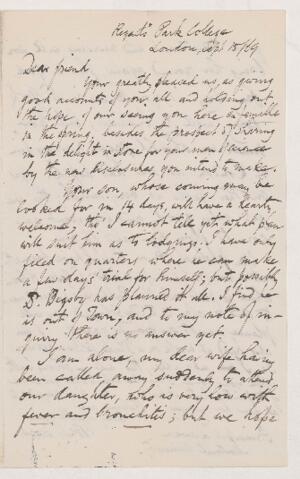 Regent's Park College
London, Sept 15/69
Dear friend
Your greatly pleased us, as giving
good accounts of you all and holding out
the hope of our seeing you here en famille
in the spring, besides the prospect of sharing
in the delight in store for your men of science
by the new discoveries you intend to make.
Your son, whose coming may be
looked for in 14 days, will have a hearty
welcome, tho' I cannot tell yet what plan
will suit him as to lodgings. I have only
fixed on quarters where he can make
a few days' trial for himself; but possibly
Dr. Bigsby has planned it all. I find he
is out of Town, and to my note of in-
quiry there is no answer yet.
I am alone, my dear wife having
been called away suddenly to attend
our daughter, who is very low with
fever and bronchitis; but we hope